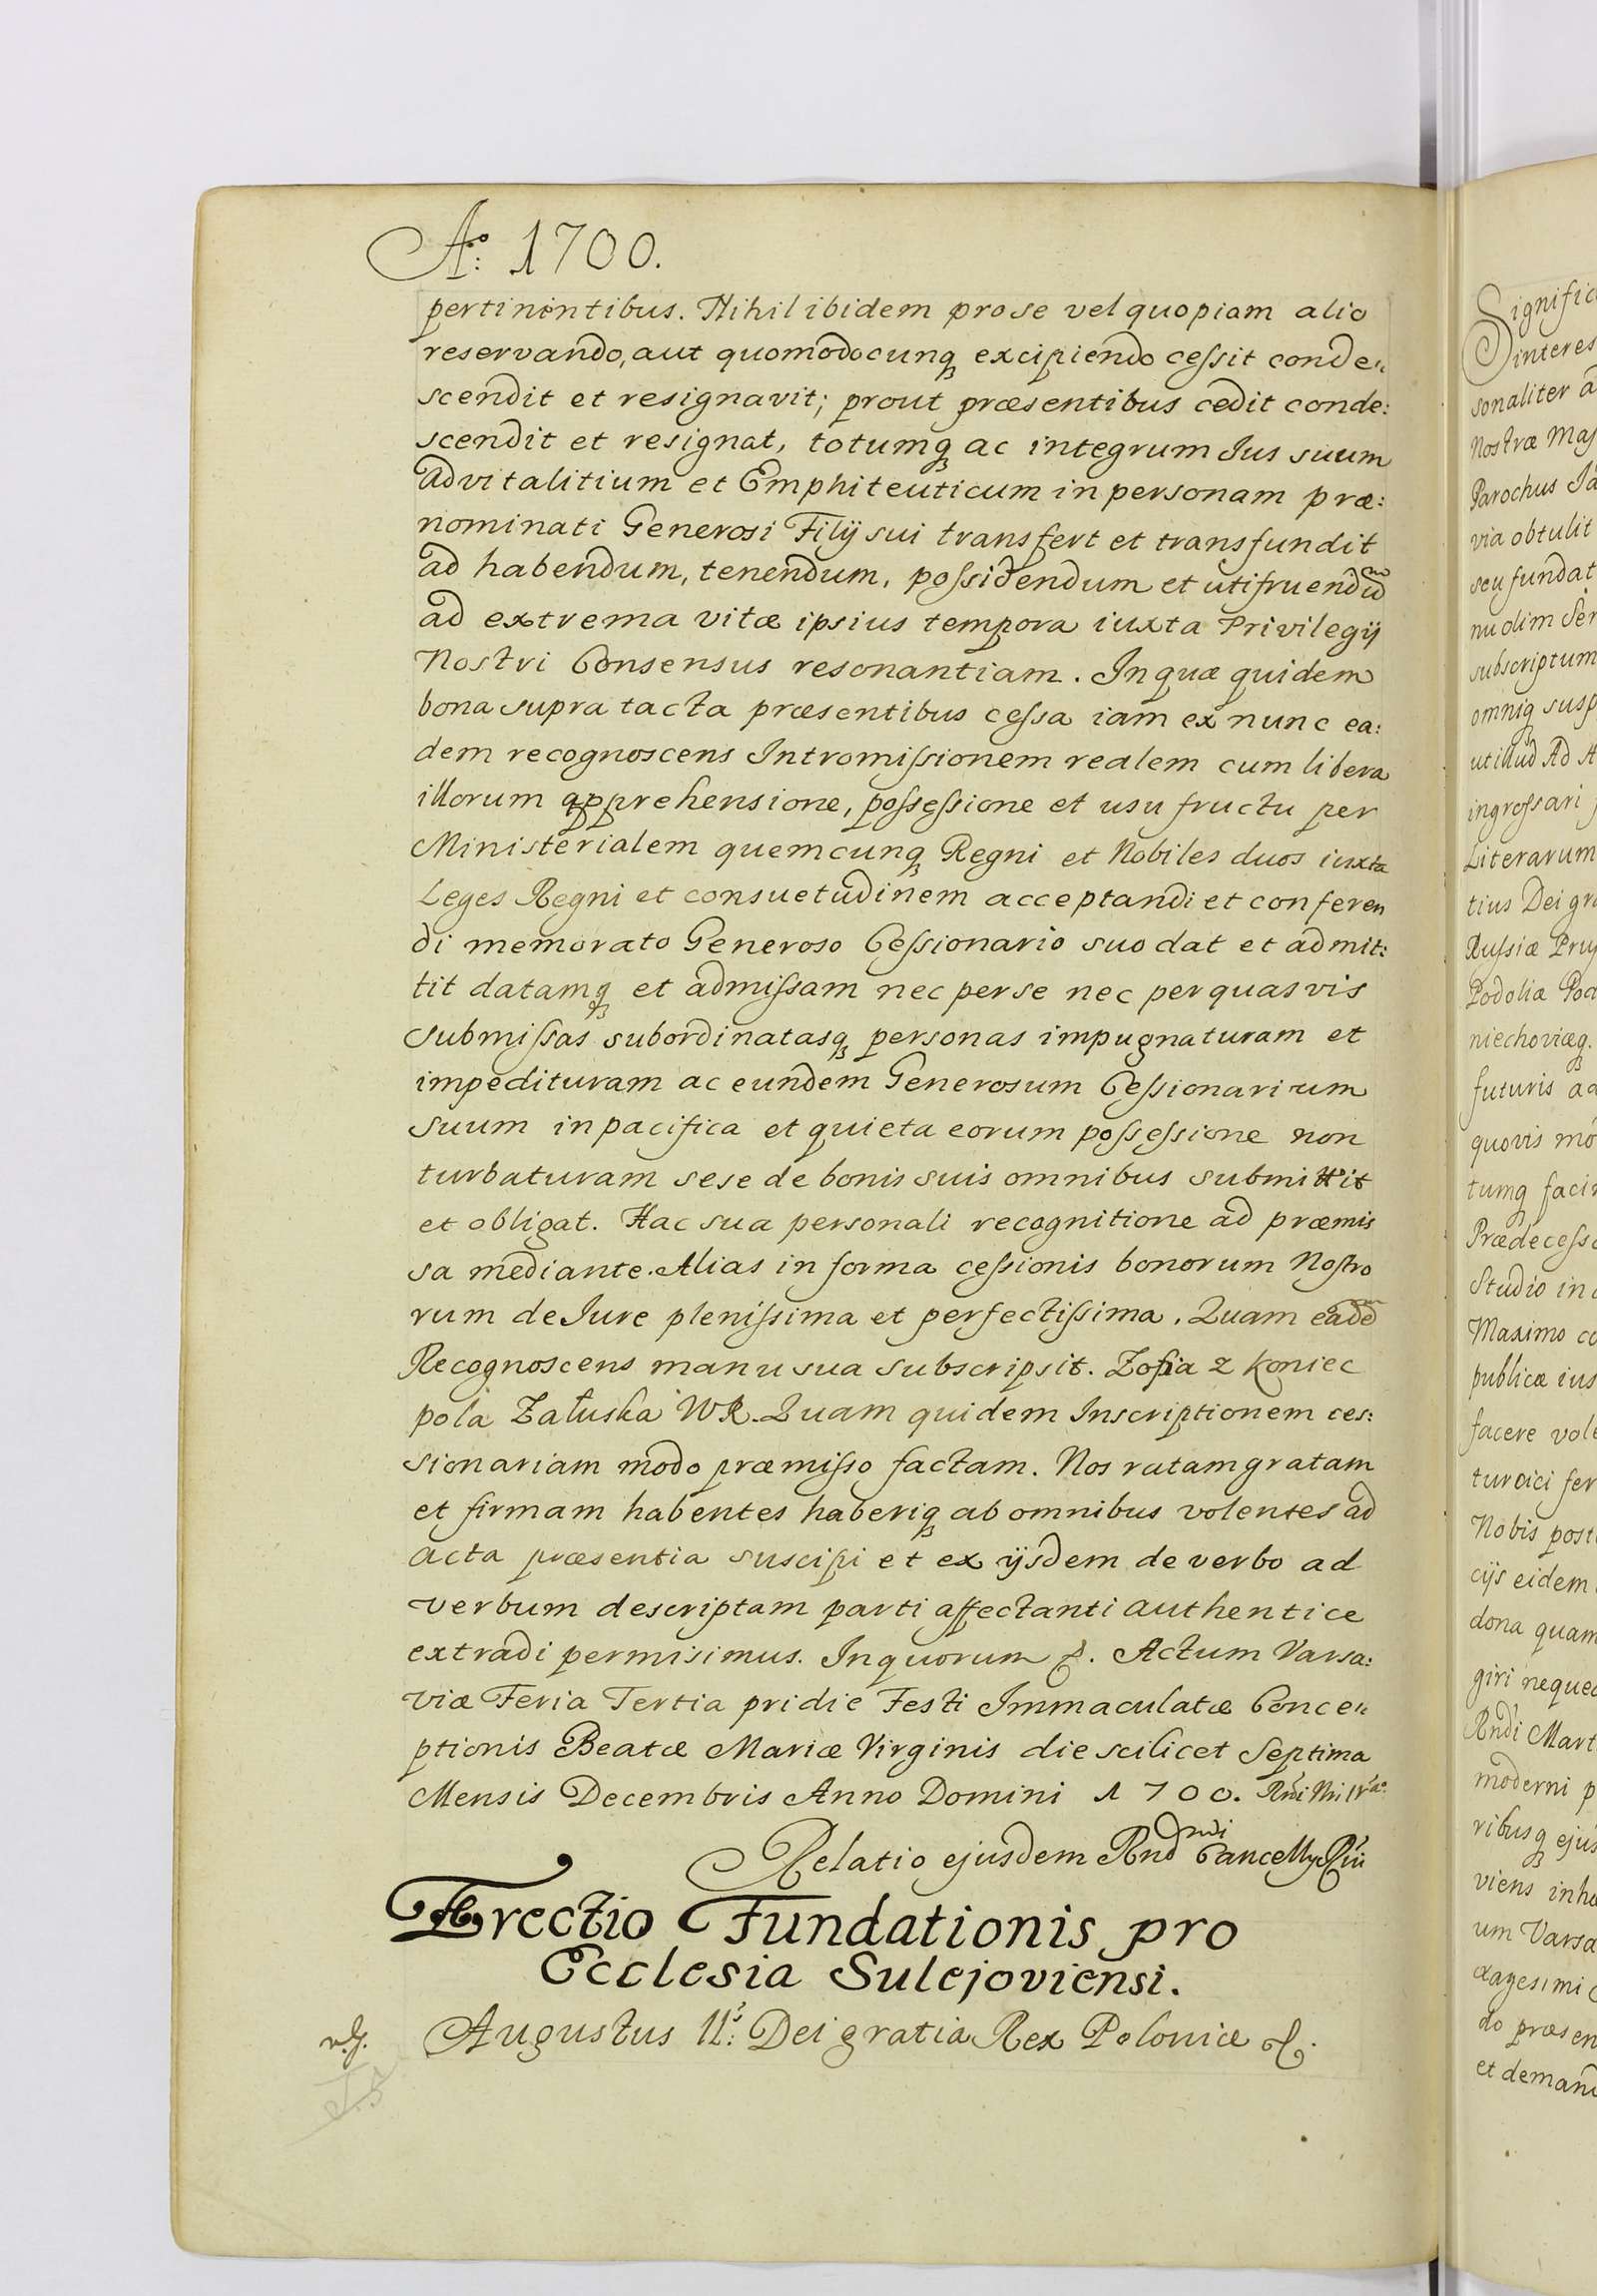 Aº: 1700.
pertinentibus. Nihil ibidem pro se vel quopiam alio
reservando, aut quomodocunq₃ excipiendo ceſsit conde„
scendit et resignavit; prout præsentibus cedit conde:
scendit et resignat, totumq₃ ac integrum Ius suum
Advitalitium et Emphiteuticum in personam præ:
nominati Generosi Filij sui transfert et transfundit
ad habendum, tenendum, poſsidendum et utifruendū
ad extrema vitæ ipsius tempora iuxta Privilegij
Nostri Consensus resonantiam. In quæ quidem
bona supra tacta præsentibus ceſsa iam ex nunc ea:
dem recognoscens Intromiſsionem realem cum libera
illorum apprehensione, poſseſsione et usu fructu per
Ministerialem quemcunq₃ Regni et Nobiles duos iuxta
Leges Regni et consuetudinem acceptandi et conferen
di memorato Generoso Ceſsionario suo dat et admit:
tit datamq₃ et admiſsam nec per se nec per quasvis
submiſsas subordinatasq₃ personas impugnaturam et
impedituram ac eundem Generosum Ceſsionarium
suum in pacifica et quieta eorum poſseſsione non
turbaturam sese de bonis suis omnibus submittit
et obligat. Hac sua personali recognitione ad præmis
sa mediante. Alias in forma ceſsionis bonorum Noſtro
rum de Iure pleniſsima et perfectiſsima. Quam eadē
Recognoscens manu sua subscripsit. Zofia z Koniec
pola Załuska WK. Quam quidem Inscriptionem ces:
sionariam modo præmiſso factam. Nos ratam gratam
et firmam habentes haberiq₃ ab omnibus volentes ad
acta præsentia suscipi et ex ijsdem de verbo ad
verbum descriptam parti affectanti authentice
extradi permisimus. In quorum &. Actum Varsa:
viæ Feria Tertia pridie Festi Immaculatæ Conce„
ptionis Beatæ Mariæ Virginis die scilicet Septima
Mensis Decembris Anno Domini 1700.
Relatio ejusdem Rndi
Erectio Fundationis pro
Ecclesia Sulejoviensi.
Augustus II: Dei gratia Rex Poloniæ &.
Signific
interes
sonaliter a
Nostræ Maj
Parochus Ia
via obtulit
seu fundat
nu olim Ser
subscriptum
omniq₃ susp
ut illud Ad A
ingroſsari
Literarum
tius Dei gra
Ruſsiæ Pru
Podoliæ Pod
niechoviæq₃.
futuris ad
quovis mo
tumq₃ faci
Prædeceſso
Studio in
Maximo co
publicæ ius
facere vole
turcici fer
Nobis post
cijs eidem
dona quam
giri nequea
Rndi Mart
moderni p
ribusq₃ ejus
viens inha
um Varsa
xagesimi
do præsen
et demand